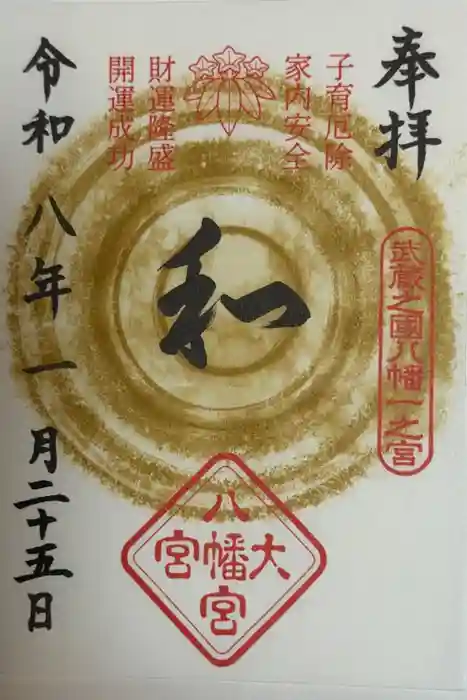 奉拝
武蔵之國八幡一之宮
子育厄除
家内安全
財運隆盛
開運成功
和
大宮八幡宮
令和八年一月二十五日